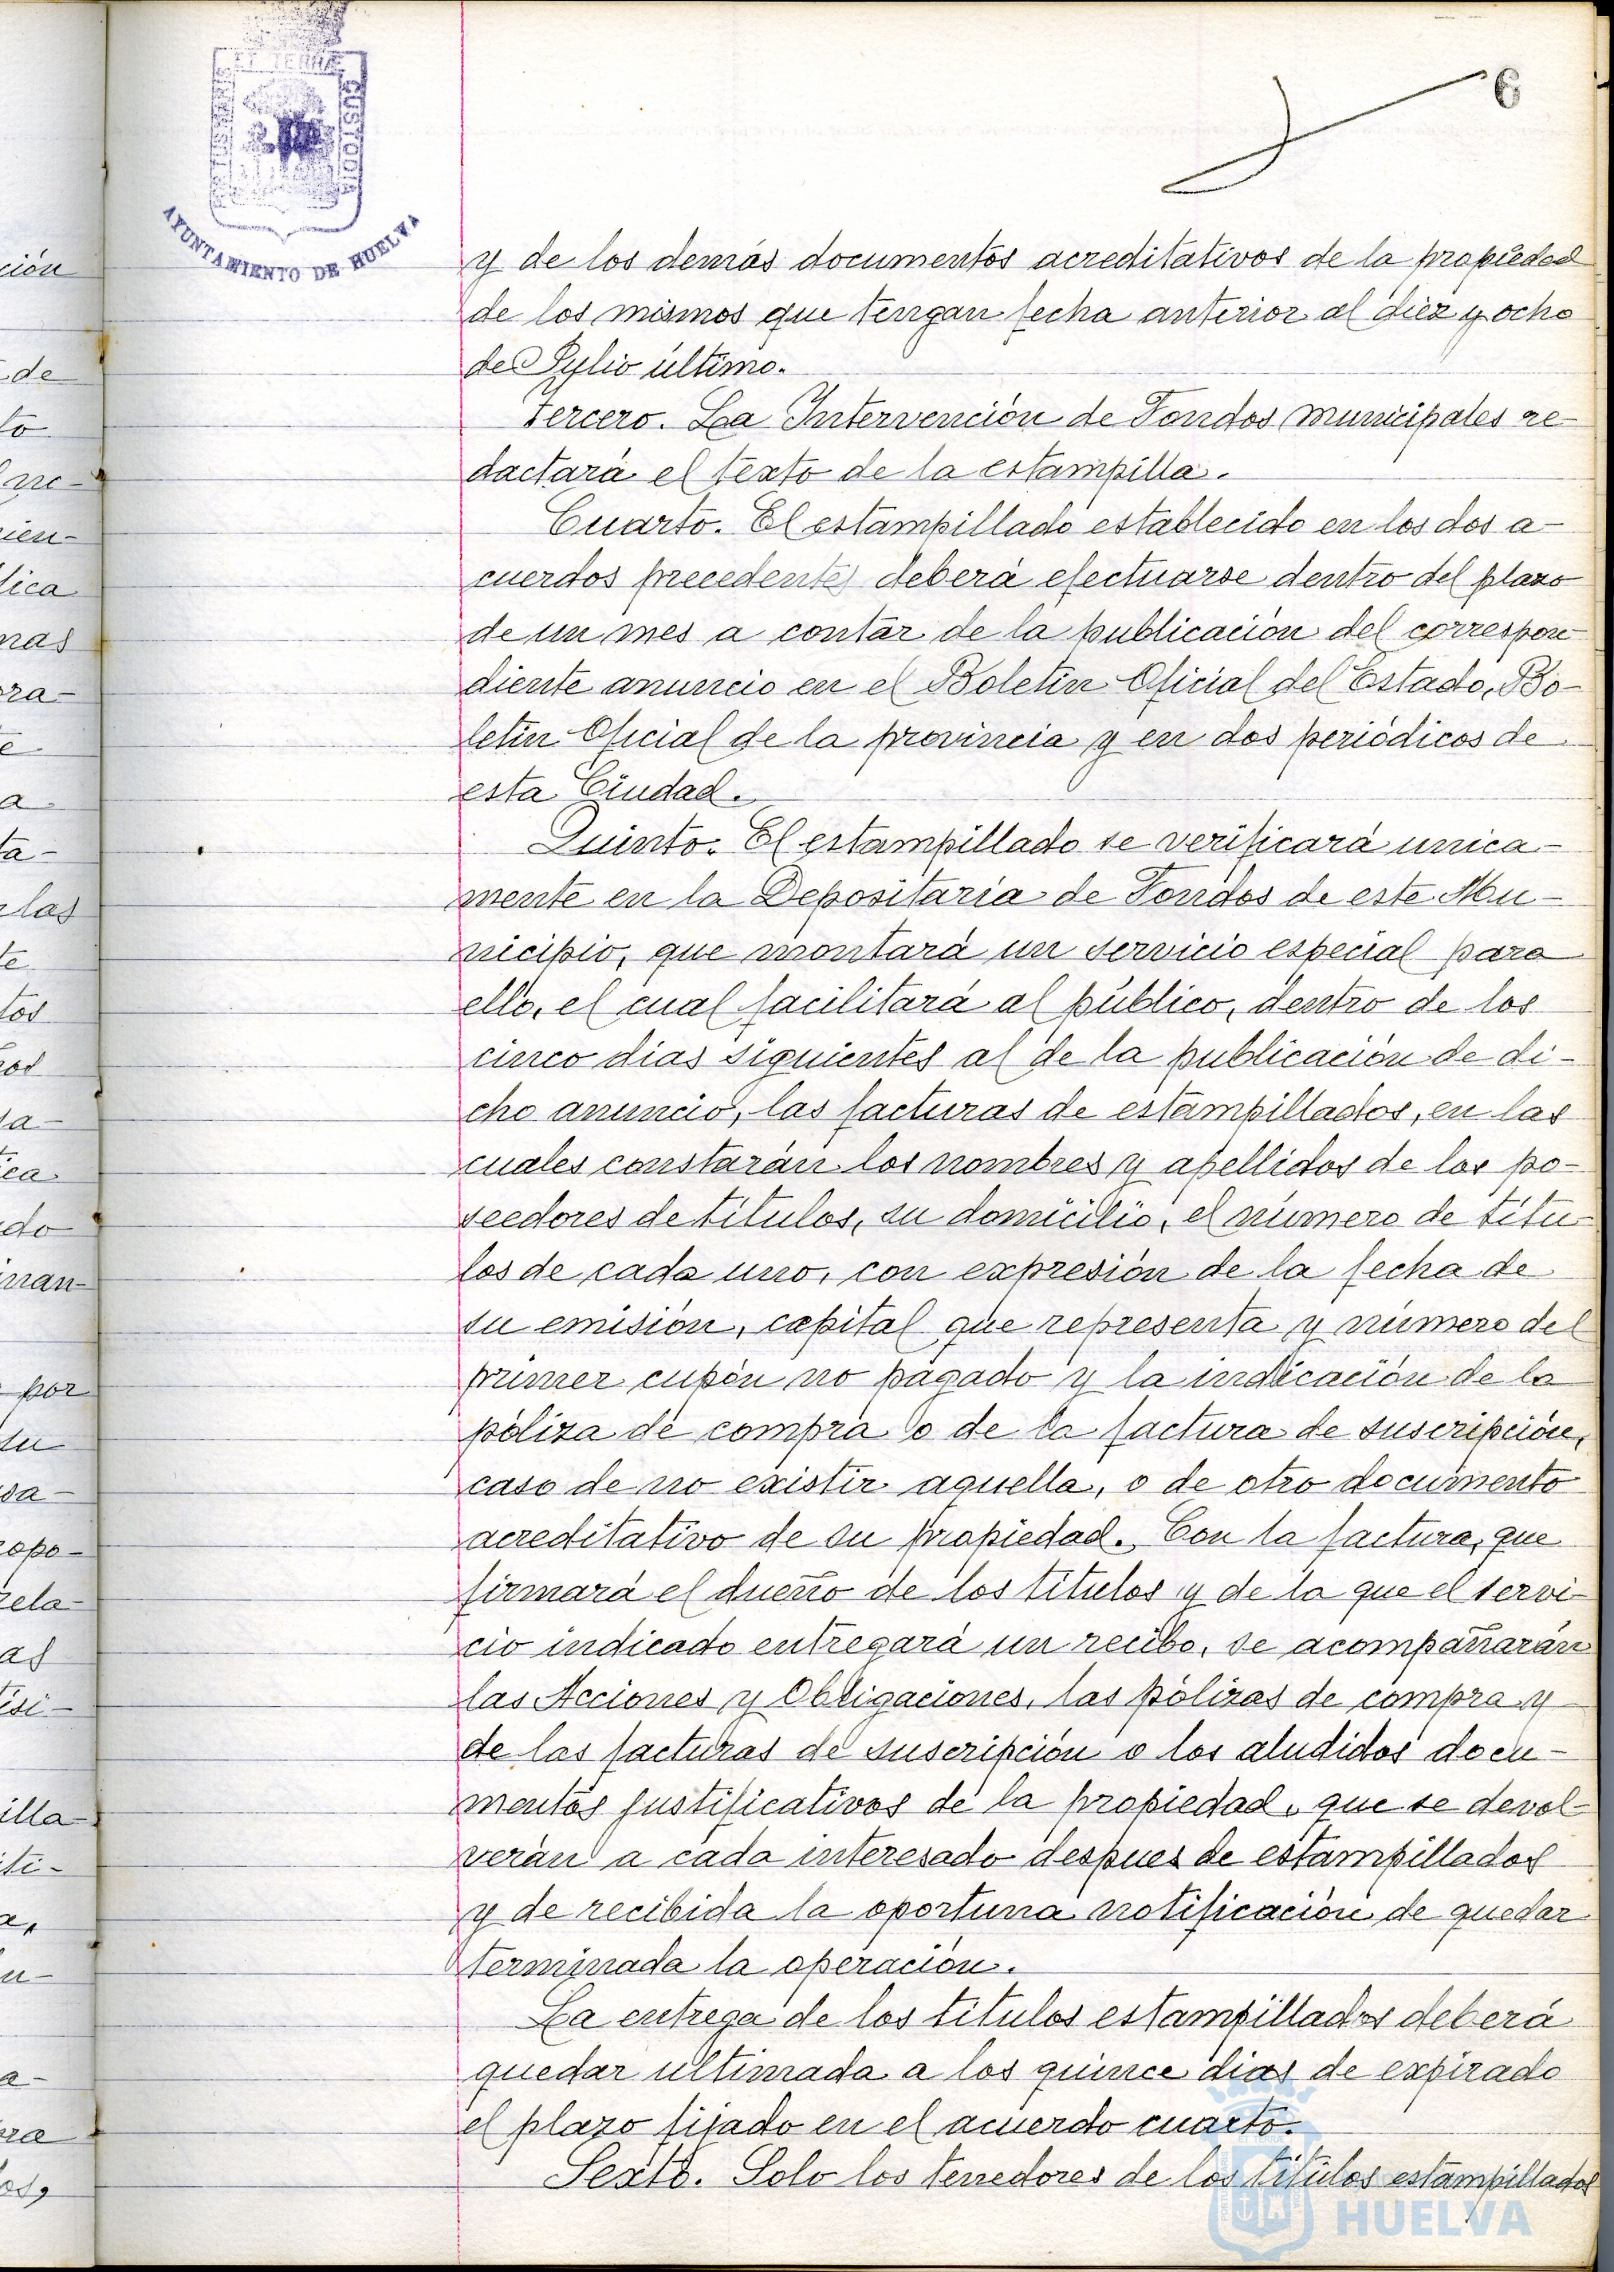 6
ET TERRÆ
CUSTODIA
AYUNTAMIENTO DE HUELVA
y de los demás documentos acreditativos de la propiedad
de los mismos que tengan fecha anterior al diez y ocho
de Julio último.
Tercero. La Intervención de Fondos municipales re-
dactará el texto de la estampilla.
Cuarto. El estampillado establecido en los dos a-
cuerdos precedentes deberá efectuarse dentro del plazo
de un mes a contar de la publicación del correspon-
diente anuncio en el Boletín Oficial del Estado, Bo-
letín Oficial de la provincia y en dos periódicos de
esta Ciudad.
Quinto. El estampillado se verificará unica-
mente en la Depositaría de Fondos de este Mu-
nicipio, que montará un servicio especial para
ello, el cual facilitará al público, dentro de los
cinco dias siguientes al de la publicación de di-
cho anuncio, las facturas de estampillados, en las
cuales constarán los nombres y apellidos de los po-
seedores de títulos, su domicilio, el número de títu-
los de cada uno, con expresión de la fecha de
su emisión, capital que representa y número del
primer cupón no pagado y la indicación de la
póliza de compra o de la factura de suscripción,
caso de no existir aquella, o de otro documento
acreditativo de su propiedad. Con la factura, que
firmará el dueño de los títulos y de la que el servi-
cio indicado entregará un recibo, se acompañarán
las Acciones y Obligaciones, las pólizas de compra y
de las facturas de suscripción o los aludidos docu-
mentos justificativos de la propiedad, que se devol-
verán a cada interesado despues de estampillados
y de recibida la oportuna notificación de quedar
terminada la operación.
La entrega de los títulos estampillados deberá
quedar ultimada a los quince dias de expirado
el plazo fijado en el acuerdo cuarto.
Sexto. Solo los tenedores de los títulos estampillados
HUELVA